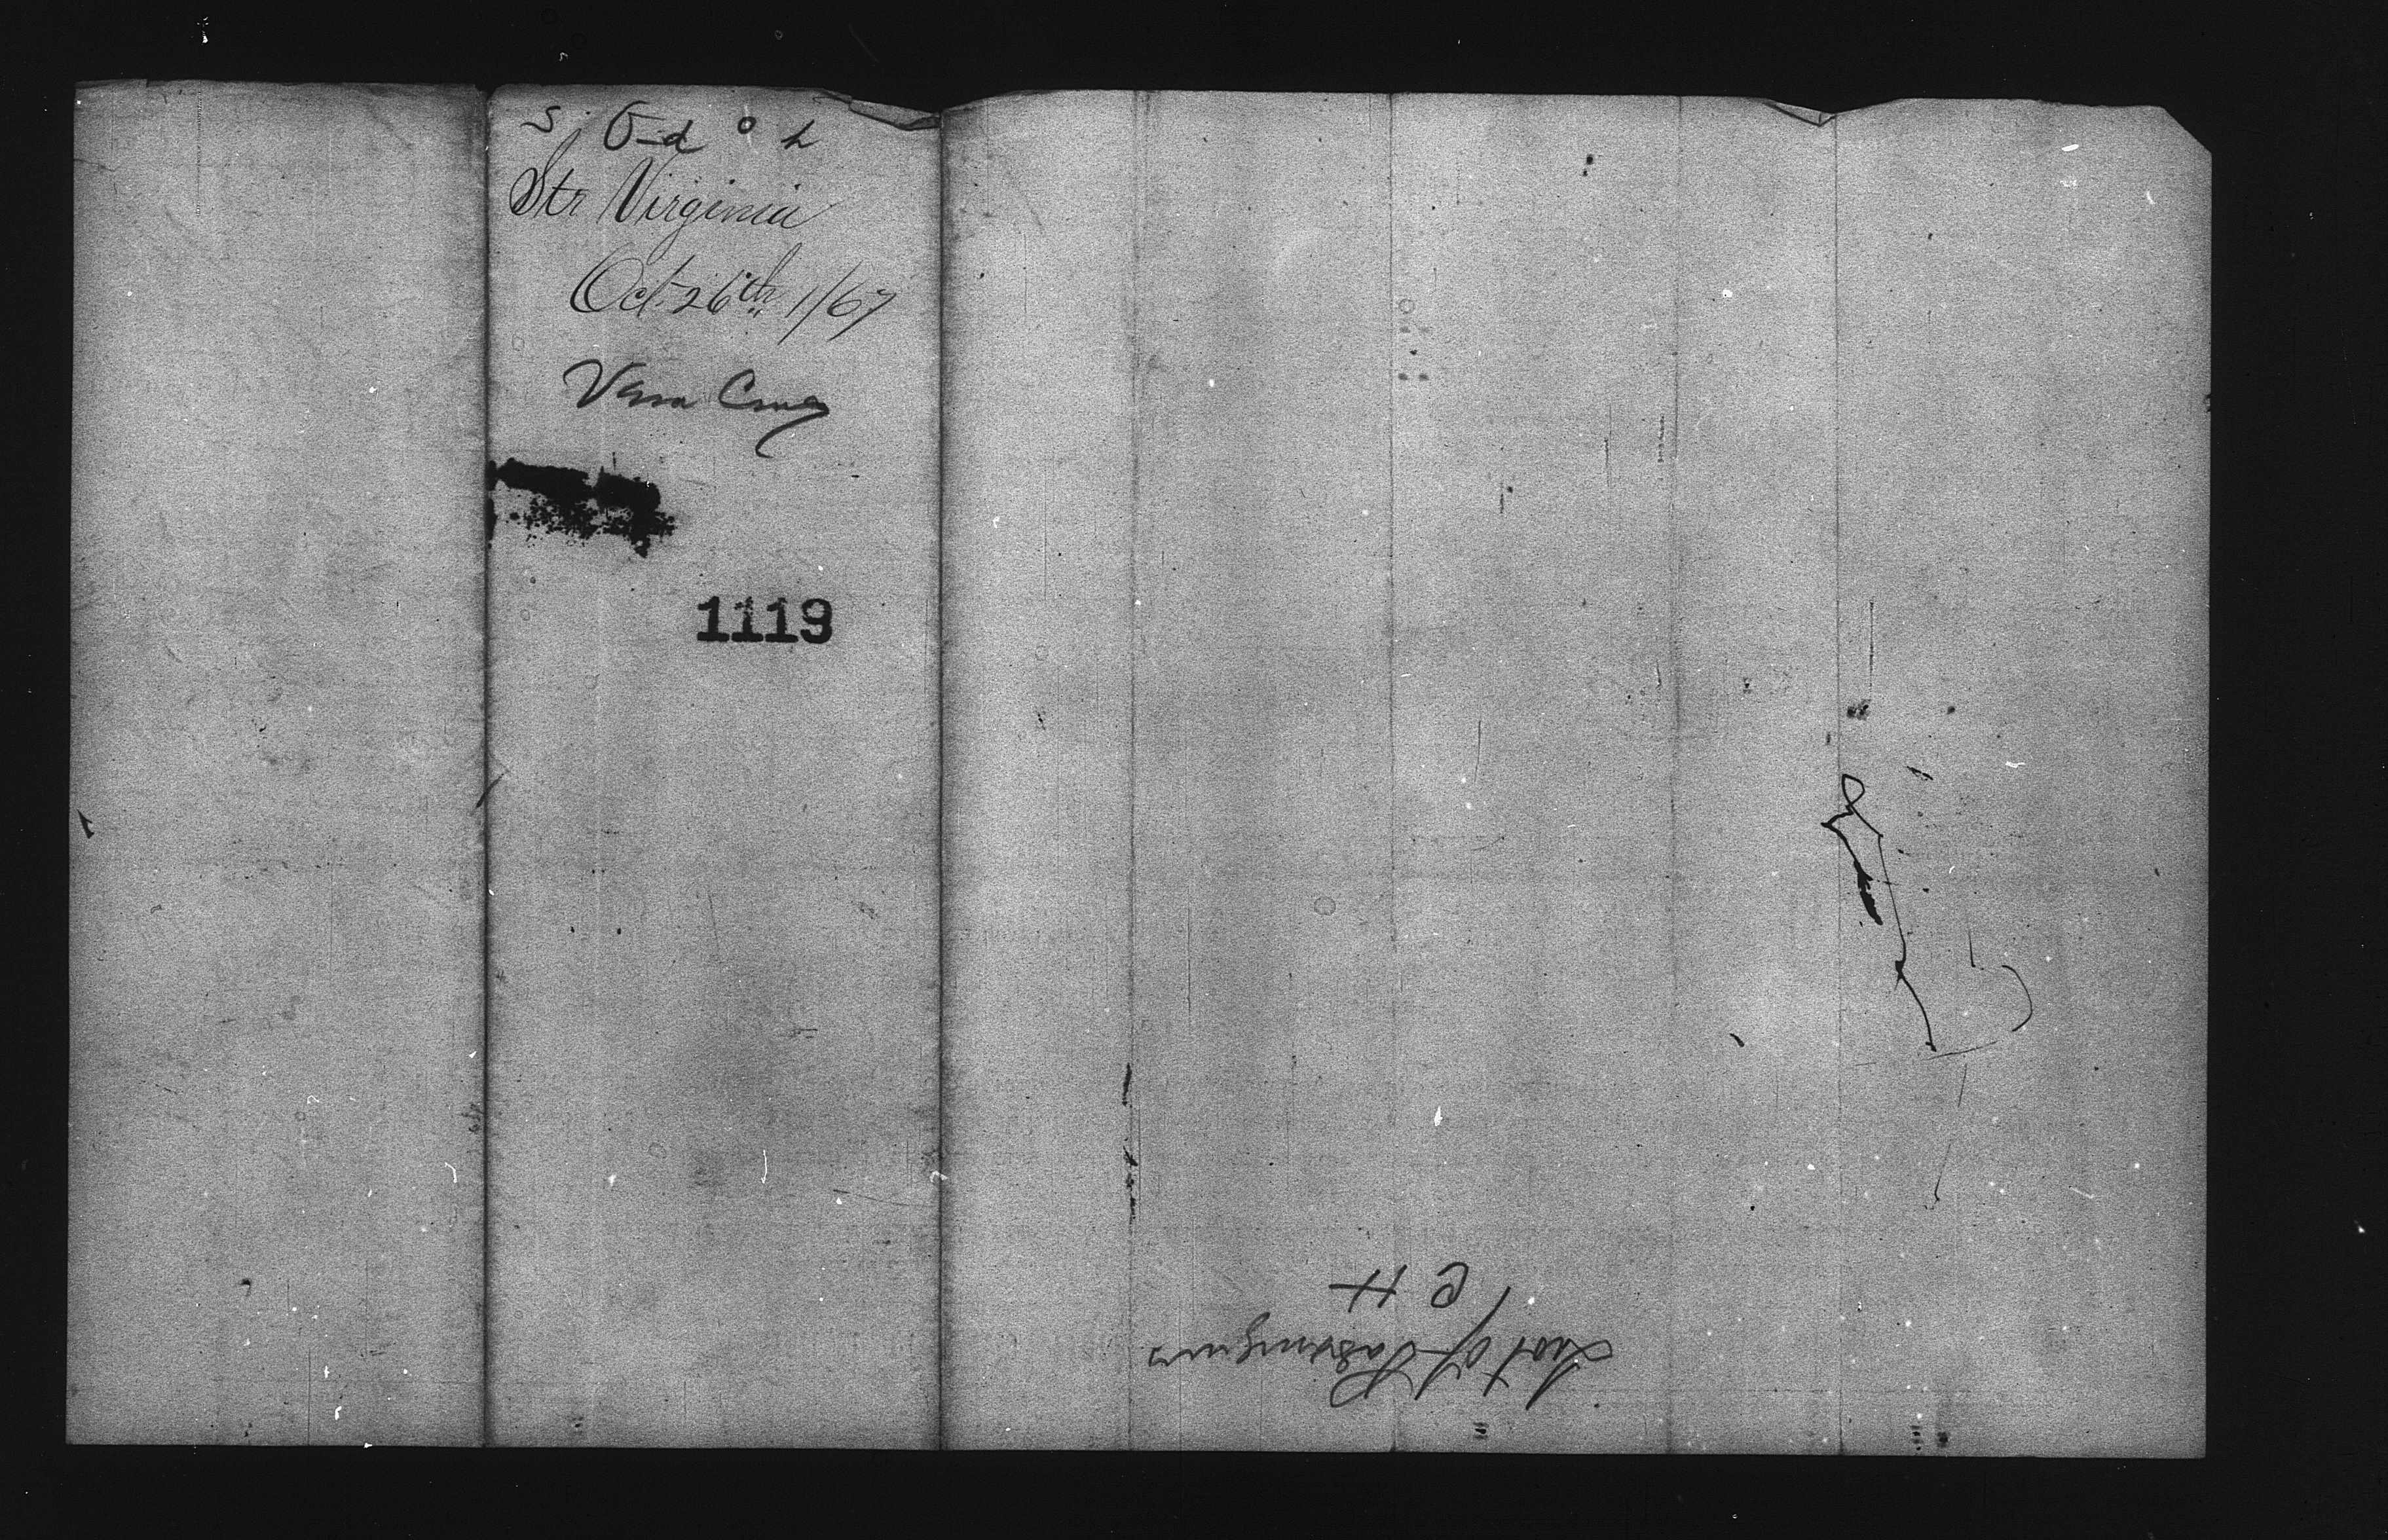 Str Virginia
Oct 26th 1/67
Vera Cruz
1119
List of Passengers
C H